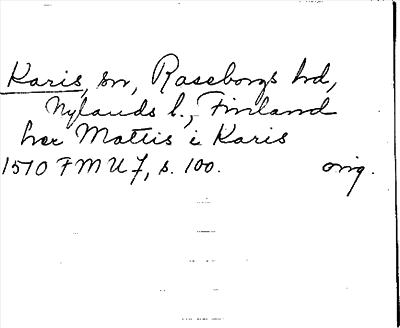 Karis, sn, Raseborgs hd,
Nylands l., Finland
her Mattis i Karis
1510 FMU 7, s. 100. orig.